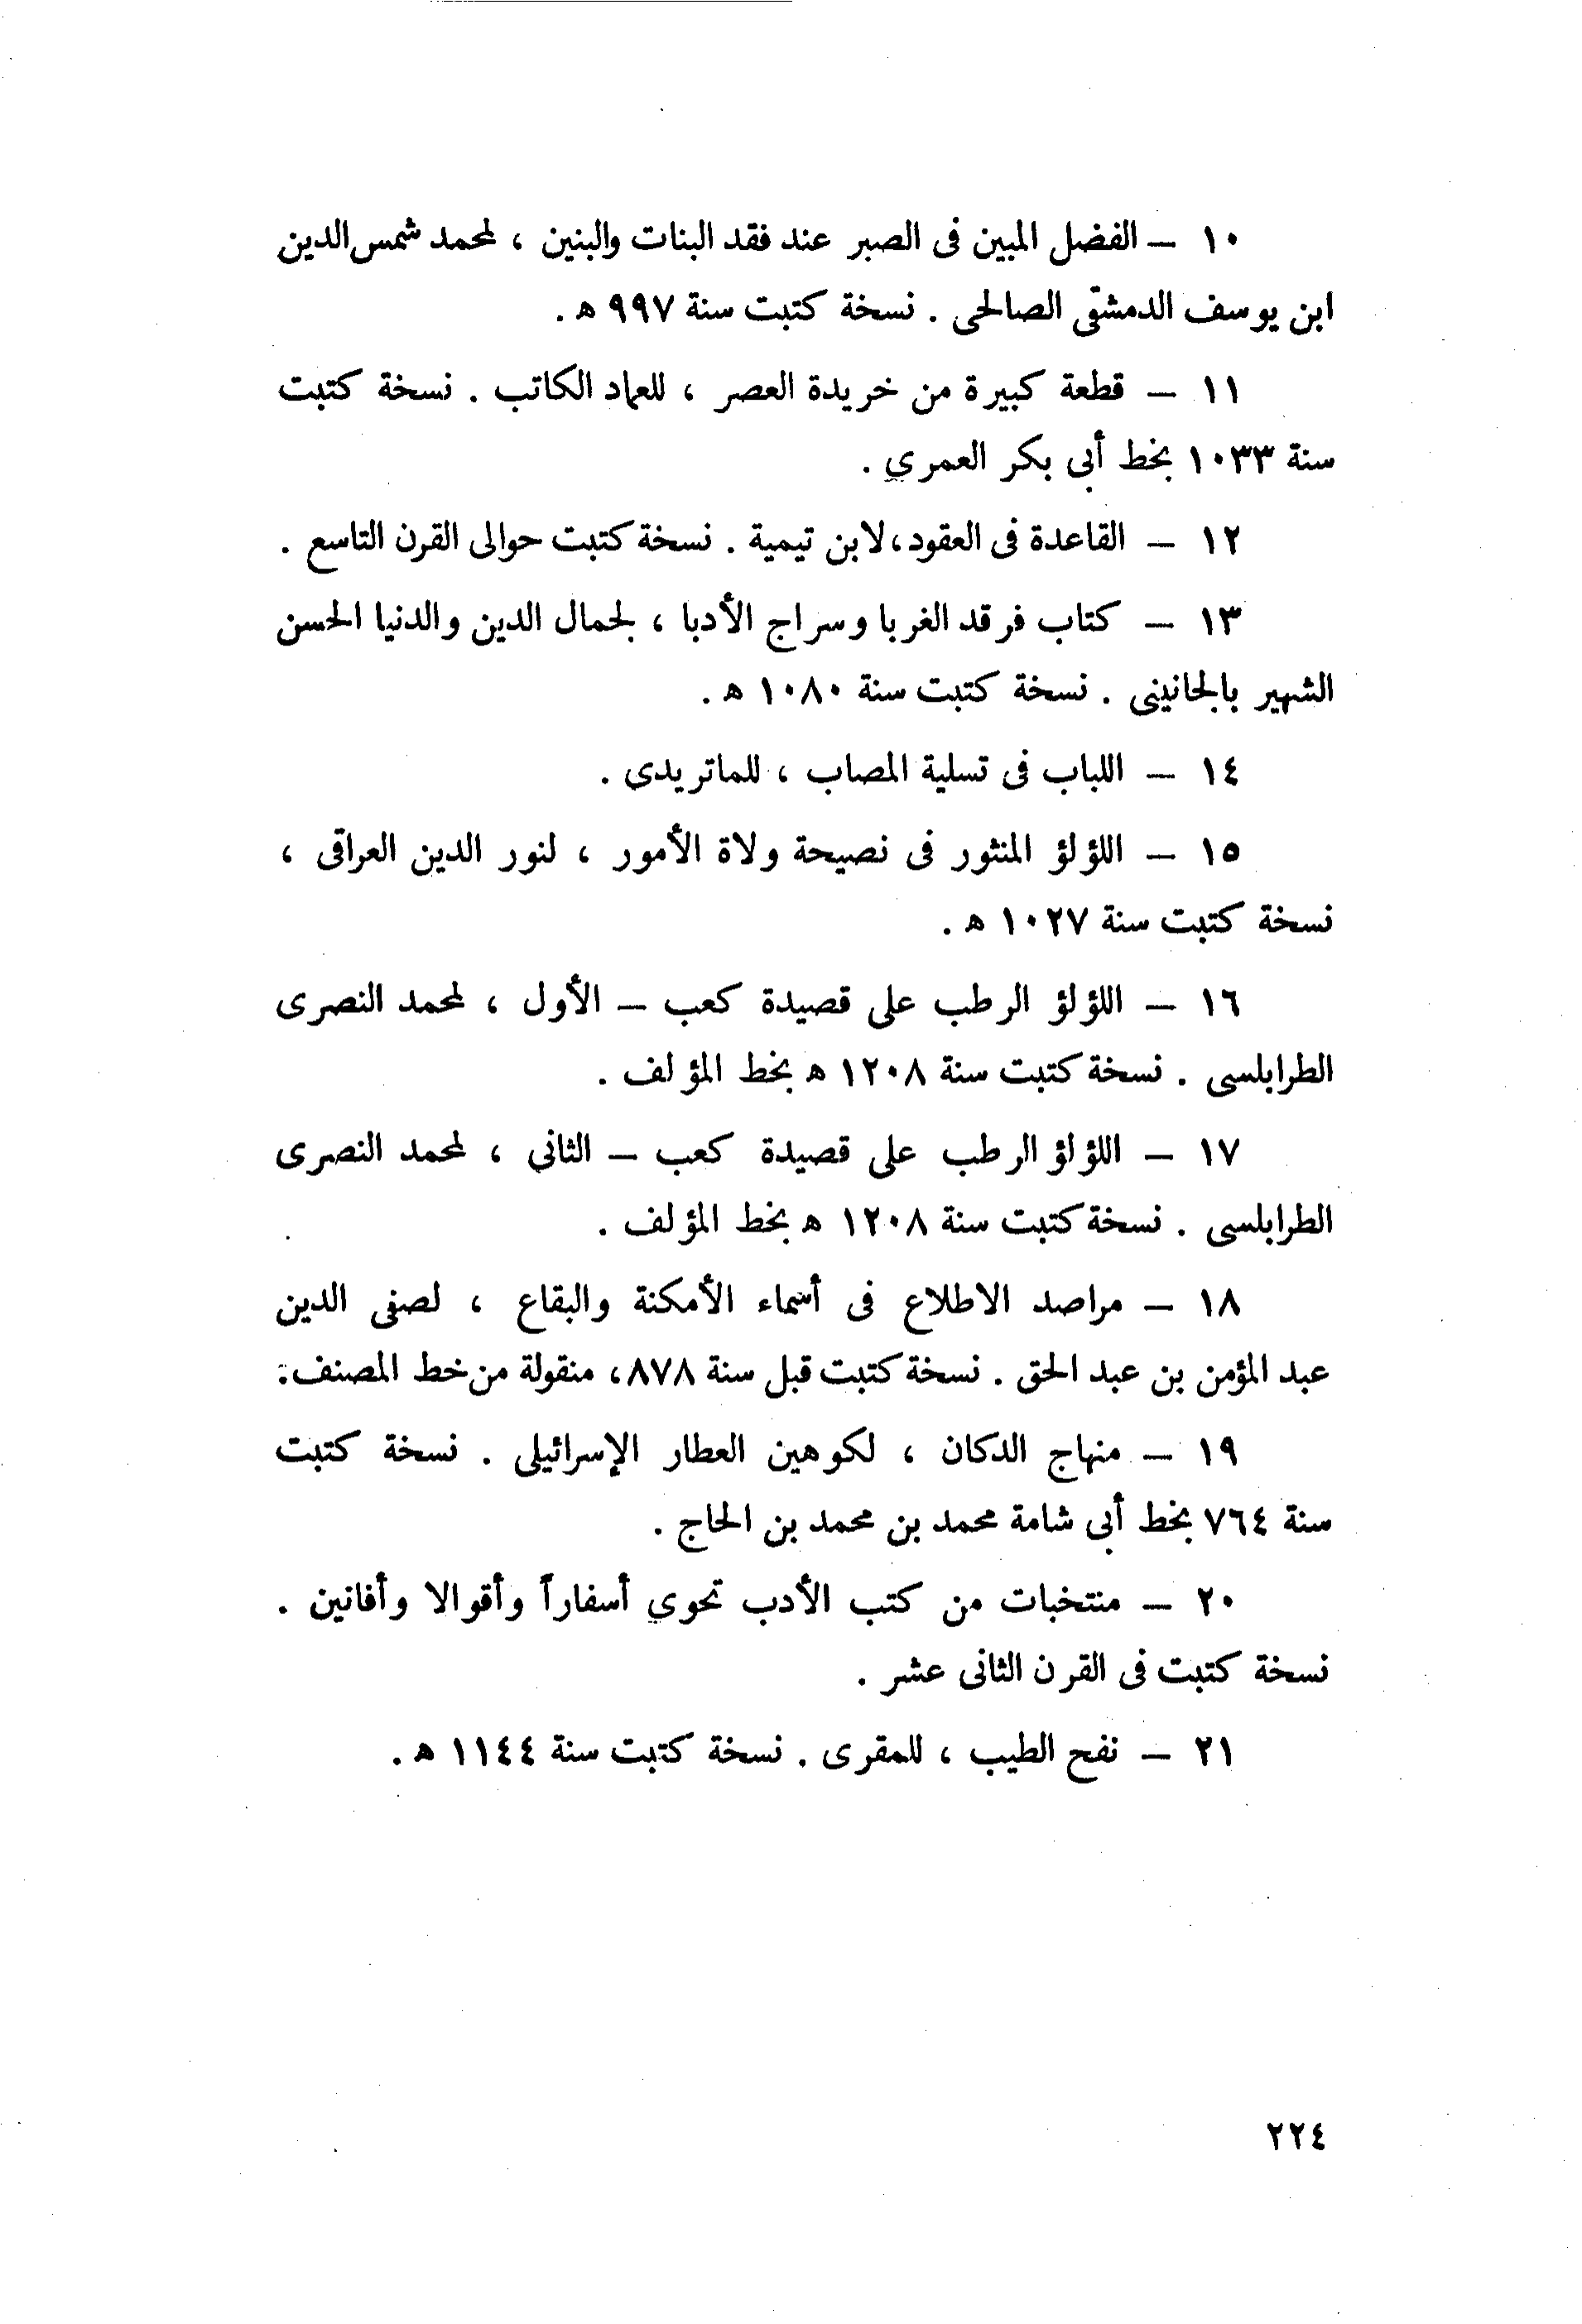 ١٠ – الفضل المبين فى الصبر عند فقد البنات والبنين ، لمحمد شمس الدين
ابن يوسف الدمشقى الصالحى . نسخة كتبت سنة ٩٩٧ ه .
١١ – قطعة كبيرة من خريدة العصر ، للعماد الكاتب . نسخة كتبت
سنة ١٠٣٣ بخط أبى بكر العمري .
١٢ – القاعدة فى العقود، لابن تيمية . نسخة كتبت حوالى القرن التاسع .
١٣ – كتاب فرقد الغربا وسراج الأدبا ، لجمال الدين والدنيا الحسن
الشهير بالجانينى . نسخة كتبت سنة ١٠٨٠ ه .
١٤ – اللباب فى تسلية المصاب ، للماتريدى .
١٥ – اللؤلؤ المنثور فى نصيحة ولاة الأمور ، لنور الدين العراقى ،
نسخة كتبت سنة ١٠٢٧ ه .
١٦ – اللؤلؤ الرطب على قصيدة كعب – الأول ، لمحمد النصرى
الطرابلسى . نسخة كتبت سنة ١٢٠٨ ه بخط المؤلف .
١٧ – اللؤلؤ الرطب على قصيدة كعب – الثانى ، لمحمد النصرى
الطرابلسى . نسخة كتبت سنة ١٢٠٨ ه بخط المؤلف .
١٨ – مراصد الاطلاع فى أسماء الأمكنة والبقاع ، لصفى الدين
عبد المؤمن بن عبد الحق . نسخة كتبت قبل سنة ٨٧٨، منقولة من خط المصنف.
١٩ – منهاج الدكان ، لكوهين العطار الإسرائيلى . نسخة كتبت
سنة ٧٦٤ بخط أبى شامة محمد بن محمد بن الحاج .
٢٠ – منتخبات من كتب الأدب تحوي أسفاراً وأقوالا وأفانين .
نسخة كتبت فى القرن الثانى عشر .
٢١ – نفح الطيب ، للمقرى . نسخة كتبت سنة ١١٤٤ ه .
٢٢٤